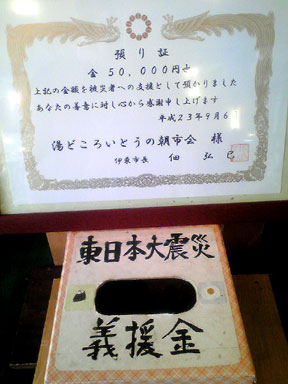 預り証
金 50,000円也
上記の金額を被災者への支援として預かりました
あなたの善意に対し心から感謝申し上げます
平成23年9月6
湯どころいとうの朝市会 様
伊東市長 佃 弘巳
東日本大震災
義援金